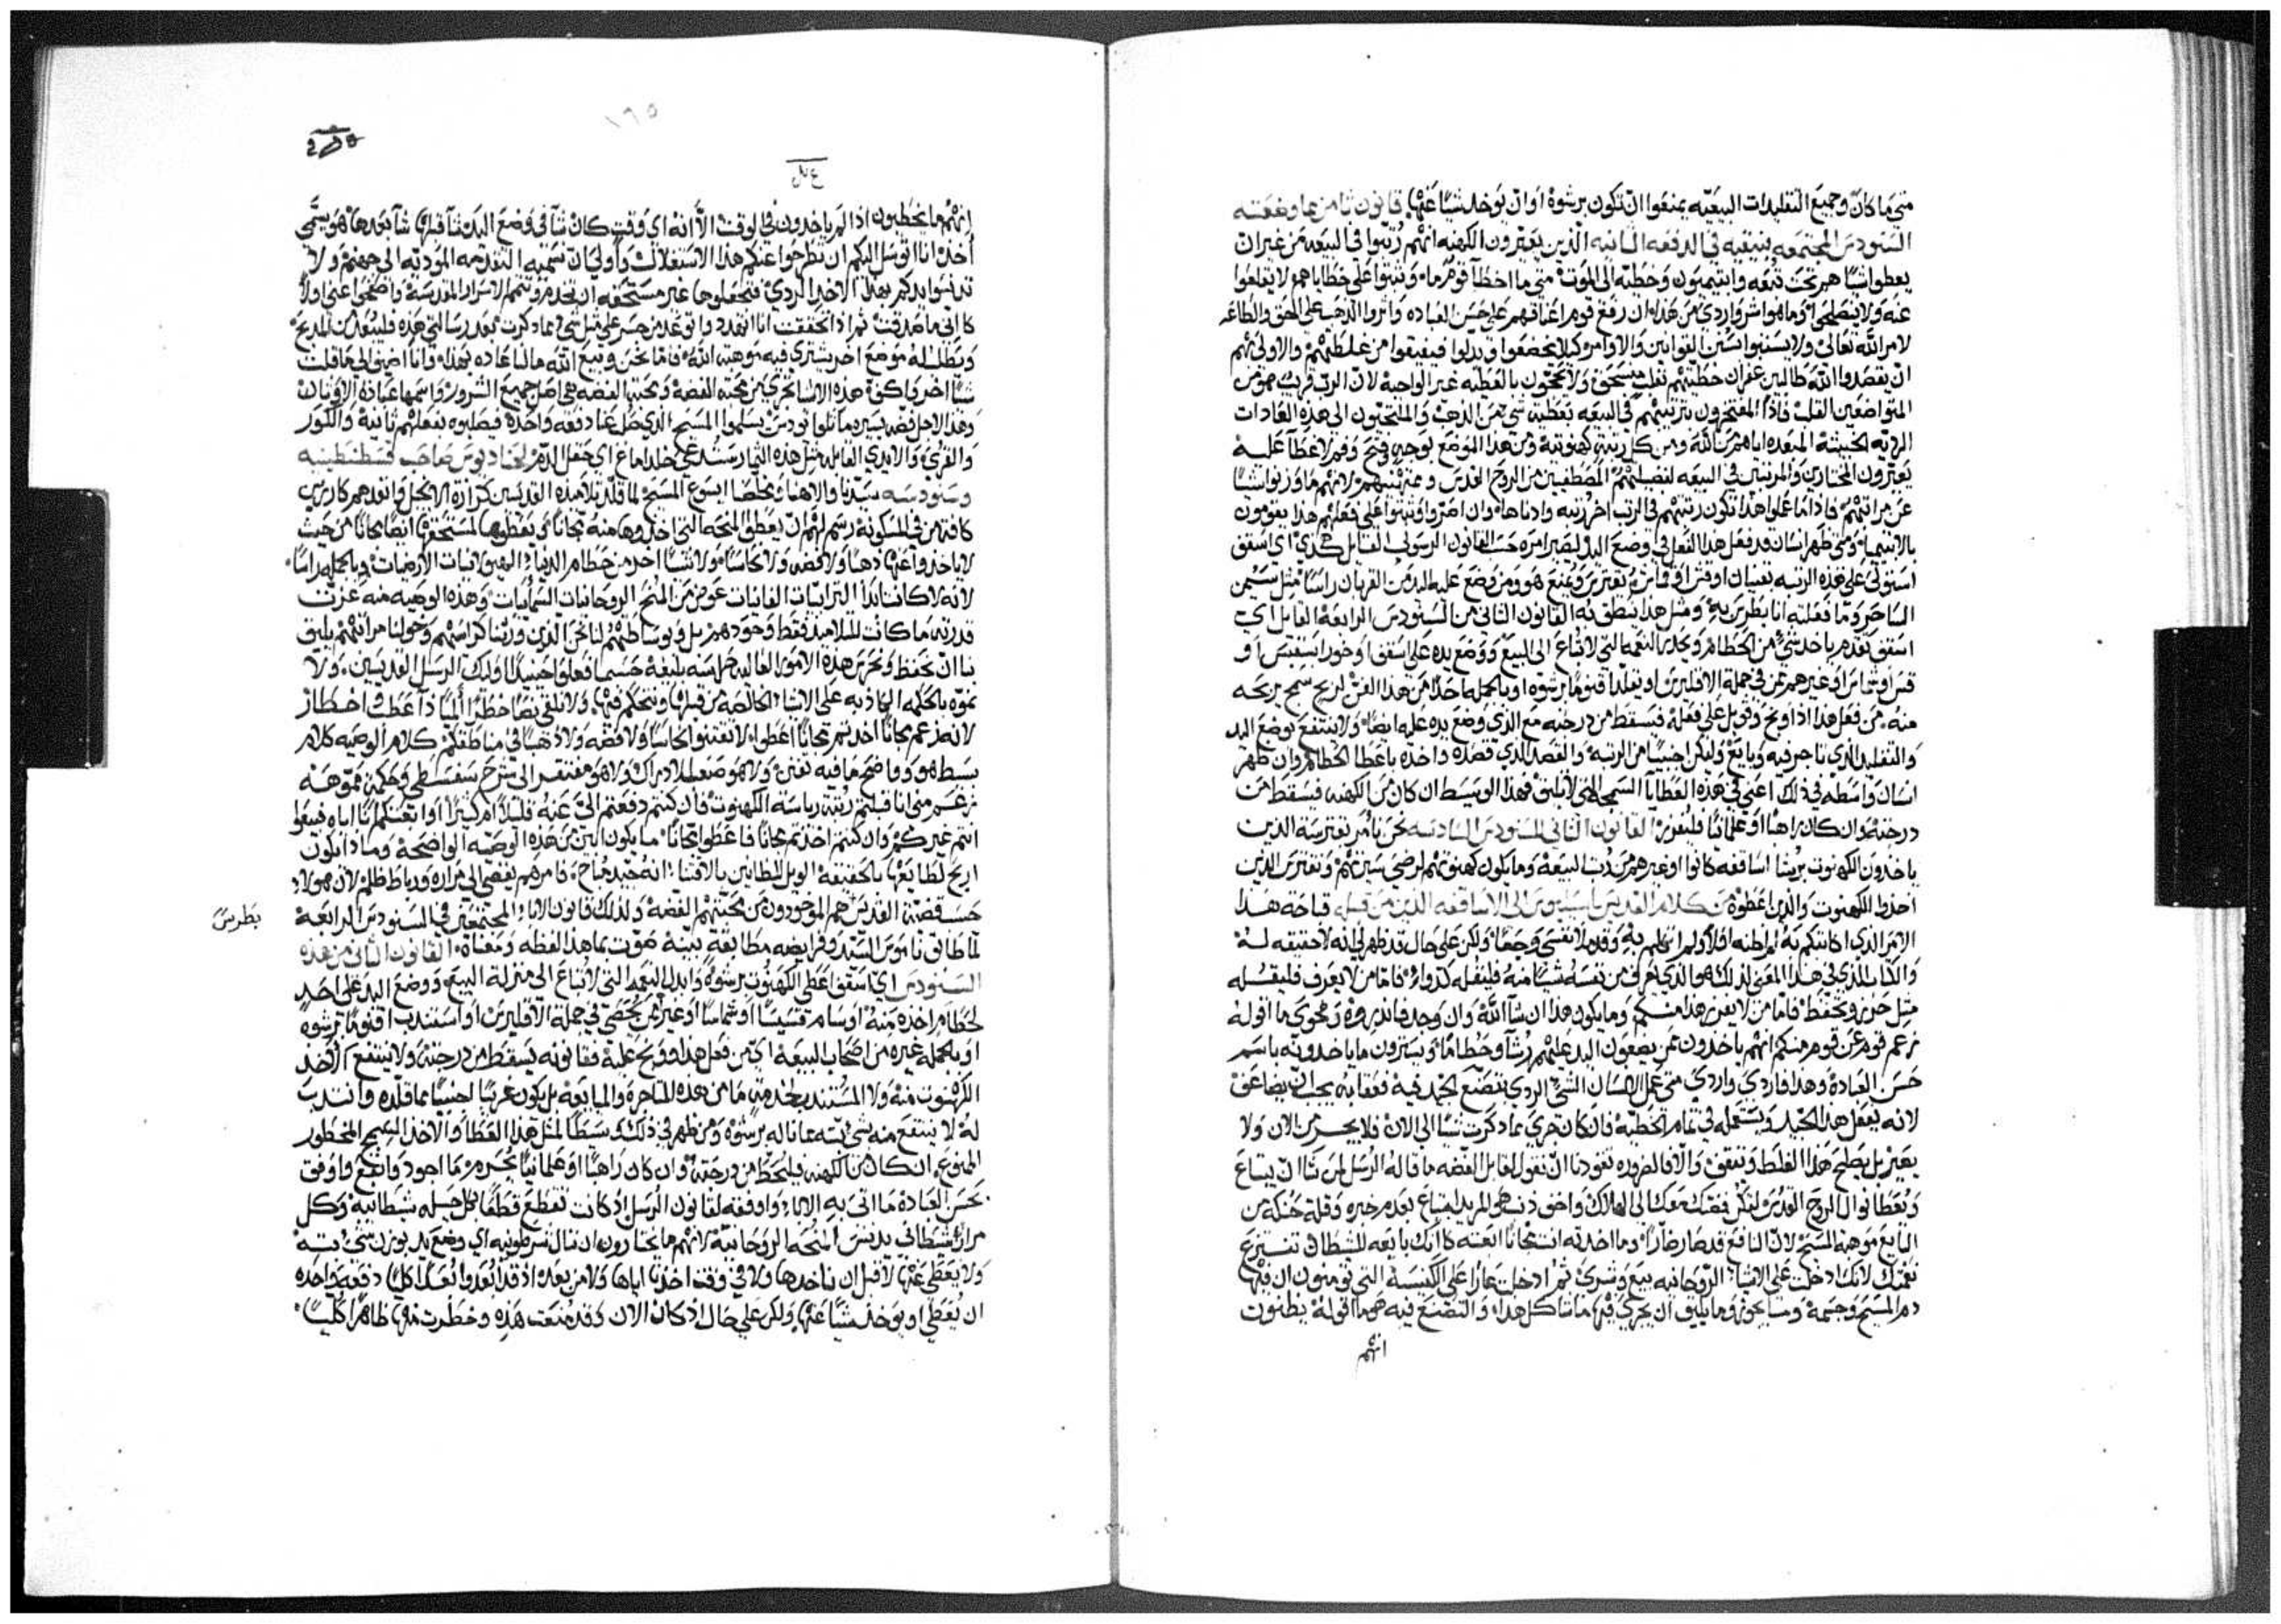 متى ما كان وجميع التقليدات البيعيه يمنعوا ان تكون برشوة او ان يوخذ شيًا عنها. قانون ثامن مما وضعته
السنودس المجتمعه بنيقيه في الدفعه الثانيه الذين يعيرون الكهنه انهم رتبوا في البيعه من غير ان
يعطوا شيًا هم تحت تبعه وابتيميون وخطيه الى الموت متى ما اخطا قوم ما وثبتوا على خطاياهم لا يقلعوا
عنه ولا ينصلحوا وما هو اشر واردى من هذا ان رفع قوم اعناقهم على حسن العباده واثروا الذهب على الحق والطاعه
لامر الله تعالى ولا يستنوا سنن القوانين والاوامر كيلا يخضعوا وتدلوا فيفيقوا من غلطتهم والاولى بهم
ان يقصدوا الله طالبين غفران خطيتهم بقلب منسحق ولا يتحجون بالعطيه غير الواجبة لان الرب قريب هو من
المتواضعين القلب فاذًا المفتخرون بترتيبهم في البيعه بعطية شي من الذهب والملتجيون الى هذه العادات
الرديه الخبيثة المبعده اياهم من الله ومن كل رتبة كهنوتية ومن هذا الموضع بوجهٍ وقح وفم لا غطا عليه
يعيرون المختارين والمرتبين في البيعه لفضيلتهم المصطفين من الروح القدس وممتهنيهم لانهم ما وزنوا شيًا
عن مراتبهم فاذا ما عملوا هذا تكون رتبتهم في الرتب اخر رتبه وادناها وان اصروا وثبتوا على فعلهم هذا يقومون
بالابتيميا ومتى ظهر انسان قد فعل هذا الفعل في وضع اليد ليصير امره حسب القانون الرسولي القايل كذي اي اسقف
استولى على هذه الرتبه بفيات او قس او شماس فليفترس ويمنع هو ومن وضع عليه اليد من القربان راسًا مثل سيمن
الساحر وما فعلته انا بطرس به ومثل هذا ينطق به القانون الثاني من السنودس الرابعه القايل اي
اسقف تقدم ياخذ شي من الحطام ويحدر النعمه التي لا تباع الى البيع ووضع يده على اسقف او خوراسقفس او
قس او شماس او غيرهم ممن في جملة الاقليرس او يقلد اقنومًا برشوه او بالجمله احدًا من هذا الفن لربح سمج يربحه
منه. من فعل هذا اذا وبخ وقوبل على فعله فيسقط من درجته مع الذي وضع يده عليه ايضا ولا ينتفع بوضع اليد
والتقليد الذي تاجر فيه وبايع وليكن اجنبيًا من الرتبه والقصد الذي قصده واخذه باعطا الحطام وان ظهر
انسان واسطه في ذلك اعني في هذه العطايا السمجه التي لا تليق فهذا الوسيط ان كان من الكهنه فيسقط من
درجته وان كان راهبًا او علمانيًا فليفرز القانون الثاني للسنودس السادسه نحن نامر بفترسة الذين
ياخذون الكهنوت برشا اساقفه كانوا او غيرهم من رتب البيعة وما يكون كهنوتهم لرضى سيرتهم ونفترس الذين
اخذوا الكهنوت والذين اعطوه من كلام القديس باسيليوس الى الاساقفه الذين من قبله قباحة هذا
الامر الذي اكاتبكم به لم اظنه اولًا ولم اتكلم به وقد ملا نفسي وجعًا ولكن على حال قد ظهر لي انه لا حقيقه له
والكتاب الذي في هذا المعنى لذلك هو الذي يعرفني من نفسه شيا منه فليقبله كدواء فاما من لا يعرف فليقبله
مثل حرز ويحتفظ فاما من لا يعير هذا منكم وما يكون هذا ان شآ الله وان وجد فانذروه وفحوى ما اقوله
زعم قوم عن قوم منكم انهم ياخذون ممن يضعون اليد عليهم رشآ وحطامًا ويسترون ما ياخذونه باسم
حسن العبادة وهذا فاردى واردى متى عمل الانسان الشي الردي بتصنع لجيد فيه فعقابه يجب ان يضاعف
لانه يفعل هذا الجيد ويستعمله في تمام الخطيّة فان كان جرى مما ذكرت شيًا الى الان فلا يجرى من الان ولا
يعير بل يصلح هذا الغلط ويتقن والا فالضروره تقودنا ان نقول لقابل الفضه ما قاله الرسل لمن شا ان يبتاع
ويعطا نوال الروح القدس لتكن فضتك معك الى الهالك واخف ذنب هي المريد ابتياع بعدم خبره وقلة حنكه من
البايع موهبة المسيح لان النافع قد صار ضارًا وما اخذته انت مجانًا ابعته كانك بايعه للشيطان تنتزع
نعمتك لانك ادخلت على الاشياء الروحانيه بيع وشرى ثم ادخلت عارًا على الكنيسة التي تومنون ان فيها
دم المسيح وجسمه وما يجوز وما يليق ان يجري فيها ما شاكل هذا والتصنع فيه هو ما اقوله يظنون
انهم
١٩٥
انهم ما يخطيون اذا لم ياخذون في الوقت الا انه اي وقت كان شآ في وضع اليد شآ قبلها شآ بعدها هو يسمى
اخذ انا اتوسل اليكم ان تطرحوا عنكم هذا الاستغلال واولى ان تسميه التقدمه المؤديه الى جهنم ولا
تدنسوا يدكم بهذا الاخذ الردي فتجعلوها غير مستحقه ان تخدم وتتمم الاسرار المقدسة واصفحوا عني اولًا
كاني ما صدقت ثم اذا تحققت انا اتهدد واتوعد من جسر على مثل شي مما ذكرت بعد رسالتي هذه فليبعد من المذبح
ويطلب له موضع اخر يشتري فيه موهبة الله فاما نحن وبيع الله ما لنا عاده بهذا وانا اضيف الى ما قلت
شيًا اخر واكف هذه الاشيا تجري من محبة الفضة ومحبة الفضه هي اصل جميع الشرور واسمها عبادة الاوثان
وهذا لاجل فضه يسيره ما تلوا يودس يسلموا المسيح الذي صلب عنا دفعه واحدة فيصلبوه بفعلهم ثانية والكور
والقرى والايدي القابله مثل هذه الثمار ستدعى خلداماع اي حقل الدم لجناديوس صاحب قسطنطينيه
وسنودسه سيدنا والاهنا ومخلصنا ايسوع المسيح لما قلّد تلاميذه القديسين كرازة الانجيل وانفدهم كارزين
كافة من في المسكونة رسم لهم ان يعطوا المنحه التي اخذوها منه مجانًا ويعطوها لمستحقها ايضًا مجانًا من حيث
لا ياخذوا عنها ذهبًا ولا فضه ولا نحاسًا ولا شيًا اخر من حطام الدنيا والمقنيات الارضيات وبالجمله راسًا
لانه لا كانت ابدًا الترابيات الفانيات عوض من المنح الروحانيات السمائيات وهذه الوصيه منه عزت
قدرته ما كانت للتلاميذ فقط وحدهم بل وبوساطتهم لنا نحن الذين ورثنا كراسيهم وخولنا مراتبهم يليق
بنا ان نحفظ ونحرس هذه الامور العاليه حراسه بليغة حسبما فعلوا حينيذ اوليك الرسل القديسين ولا
نموّه بالحكمه الكاذبه على الاشياء الخالصه من قبلها ونتحكم فيها ولا نلقي نفسًا خطة اليمًا ذا عطب واخطار
لانه زعم مجانًا اخذتم مجانًا اعطوا لا تقتنوا نحاسًا ولا فضه ولا ذهبًا في مناطقكم كلام الوصيه كلام
بسط هو وواضح ما فيه تفنن ولا هو صعب للادراك ولا هو مفتقر الى شرح سفسطي وحكمة مموّهه
زعم مني انا قبلتم رتبة رياسة الكهنوت فان كنتم دفعتم الى عنه قليلًا ام كثيرًا او ابعتكم انا اياه فبيعوا
انتم غيركم وان كنتم اخذتم مجانًا فاعطوا مجانًا ما يكون ابين من هذه الوصية الواضحة وماذا يكون
اربح لطايعها بالحقيقة الويل للظانين بالاقتنا انه جيد مباح فامرهم يفضي الى مراره ورباط ظلم لان هولاء
حسب قضية القديس هم الموجودون من محبتهم الفضه ولذلك قانون الاباء المجتمعين في السنودس الرابعة
بطرس
لما طابق ناموس السيد وفرايضه مطابقة بينة صوّت بما هذا لفظه ومعناه القانون الثاني من هذه
السنودس اي اسقف اعطى الكهنوت برشوه وابدل النعمه التي لا تباع الى منزلة البيع ووضع اليد على احدٍ
لحطام اخذه منه او سام قسيسًا او شماسًا او غير ممن يحصى في جملة الاقليرس او استندب اقنومًا برشوه
او بالجمله غيره من اصحاب البيعة اي من فعل هذا ووبخ عليه فقانونه يسقط من درجته ولا ينتفع الاخذ
الكهنوت منه ولا المستندب لخدمة ما من هذه المتاجره والمبايعه بل يكون غريبًا اجنبيًا مما قلده وانتدب
له لا ينتفع منه بشي بته مما ناله برشوه ومن ظهر في ذلك وسيطًا لمثل هذا العطا والاخذ القبيح المحظور
الممنوع ان كان من الكهنه فليحط من درجته وان كان راهبًا او علمانيًا يحرم ما اجود وانفع واوفق
بحسن العبادة ما اتى به الاباء واوفقه لقانون الرسل اذ كانت تقطع قطعًا كل حيله شيطانية وكل
مراد شيطاني يدنس المنحه الروحانية لانهم ما يختارون ان تنال شرطونيه اي وضع يد بوزن شي بته
ولا يعطى عنها لا قبل ان ناخدها ولا في وقت اخذنا اياها ولا من بعده اذ قد ابعدوا بُعدًا كليًا دفعة واحده
ان يُعطى او يوخذ شيًا عنها ولكن على حال اذ كان الان وقد مُنعت هذه وحظرت منها ظاهرًا كليًا